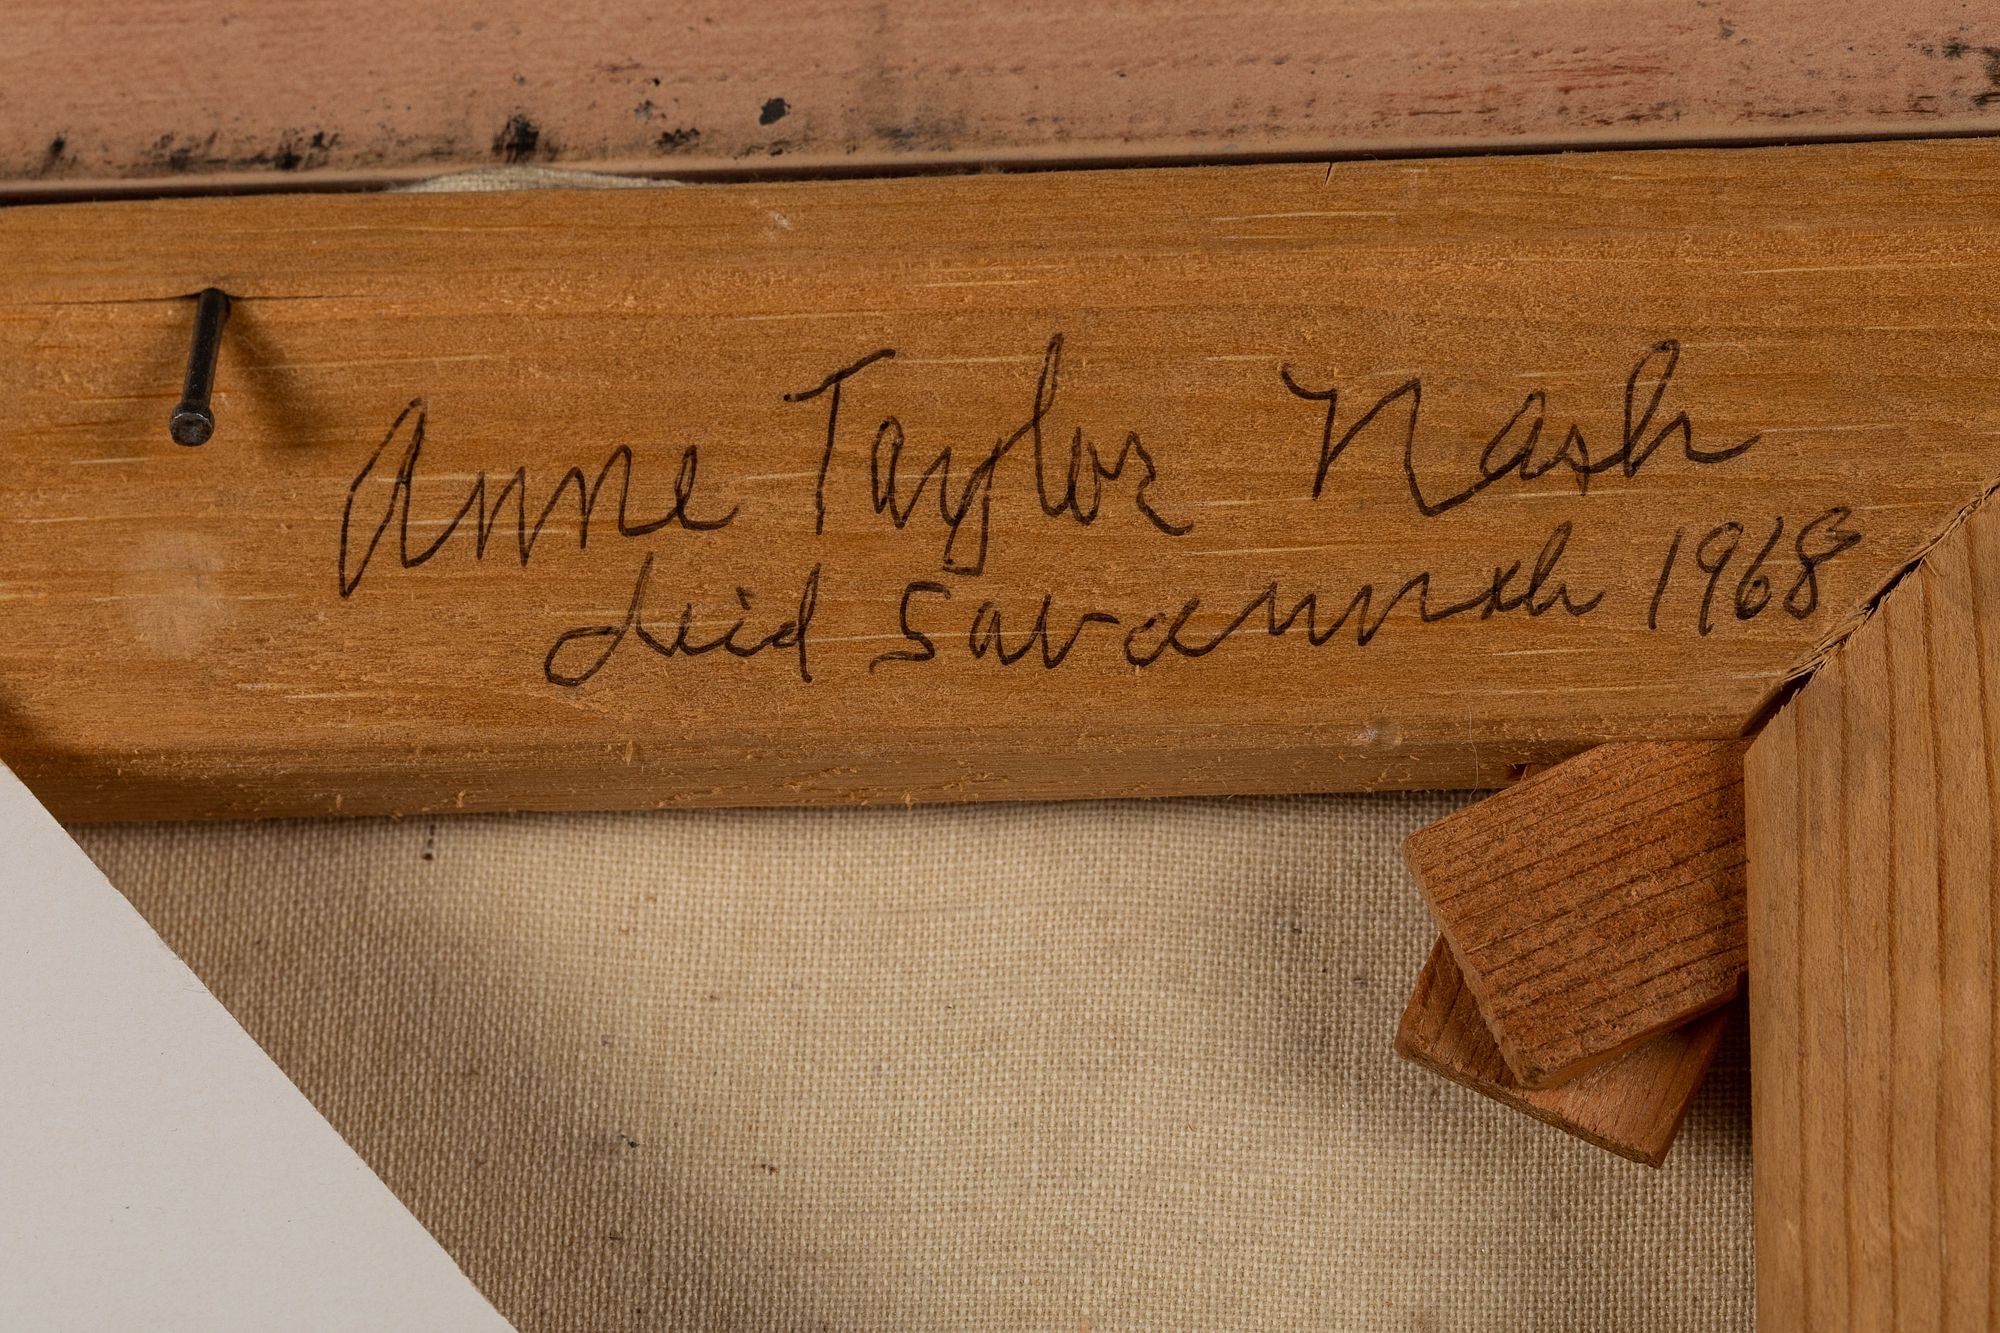 Anne Taylor Nash
deid Savannah 1968